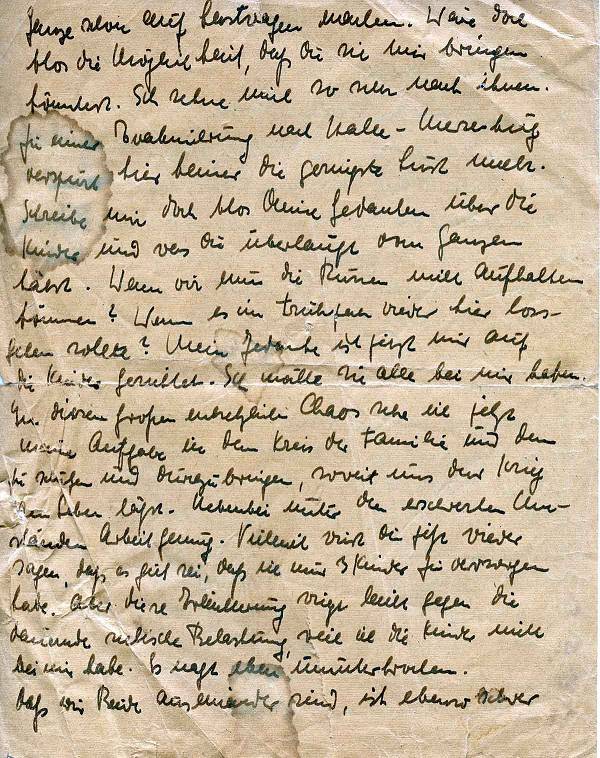 ganze schon auf Lastwagen machen. Wäre doch
blos die Möglichkeit, daß du sie mir bringen
könntest. Ich sehne mich so sehr nach ihnen.
Zu einer Evakuierung nach Halle-Merseburg
verspürt hier keiner die geringste Lust mehr.
Schreibe mir doch blos Deine Gedanken über die
Kinder und was du überhaupt vom Ganzen
hälst. Wenn wir nun die Russen nicht aufhalten
können? Wenn es im Frühjahr wieder hier los-
gehen sollte? Mein Gedanke ist jetzt nur auf
die Kinder gerichtet. Ich möchte sie alle bei mir haben.
In diesem großen entsetzlichen Chaos sehe ich jetzt
meine Aufgabe in dem Kreis der Familie und dem
zu sorgen und durchzubringen, soweit uns der Krieg
am Leben läßt. Nebenbei unter den erschwerten Um-
ständen Arbeit genug. Vielleicht wirst du jetzt wieder
sagen, daß es gut sei, daß ich nur 3 Kinder zu versorgen
habe. Aber diese Erleichterung wiegt nicht gegen die
dauernde seelische Belastung, weil ich die Kinder nicht
bei mir habe. Es nagt eben ununterbrochen.
Daß wir Beide auseinander sind, ist ebenso schwer